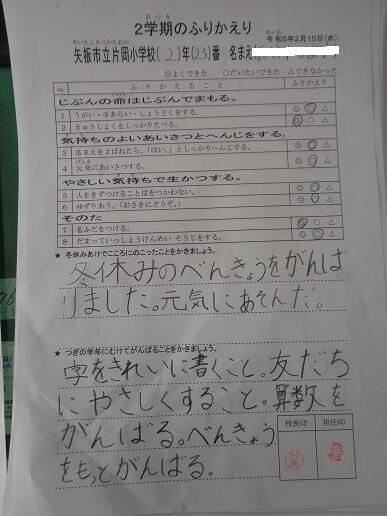 がっき
2学期のふりかえり
令和5年2月15日(水)
やいたしりつかたおか
矢板市立片岡小学校(2)年(23)番 名まえ
◎よくできた ○だいたいできた △できなかった
No. ふりかえること ふりかえり
じぶんの命はじぶんでまもる。
1 うがい・手あらい・しょうどくをする。 ◎ ○ △
2 きゅうしょくをしっかりたべる。 ◎ ○ △
気持ちのよいあいさつとへんじをする。
3 名まえをよばれたら、「はい。」としっかりへんじする。 ◎ ○ △
げんき
4 元気にあいさつする。 ◎ ○ △
やさしい気持ちで生かつする。
5 人をきずつけることばをつかわない。 ◎ ○ △
6 ゆずりあう。「おさきにどうぞ。」 ◎ ○ △
そのた
7 名ふだをつける。 ◎ ○ △
8 だまっていっしょうけんめい そうじをする。 ◎ ○ △
★ 冬休みあけてこころにのこったことをかきましょう。
冬休みのべんきょうをがんば
りました。元気にあそんだ。
★ つぎの学年にむけてがんばることをかきましょう。
字をきれいに書くこと。友だち
にやさしくすること。算数を
がんばる。べんきょう
をもっとがんばる。
校長印 担任印